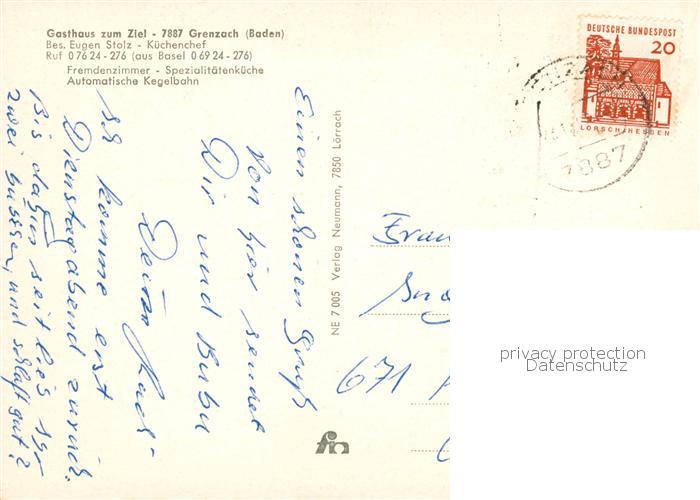 Gasthaus zum Ziel - 7887 Grenzach (Baden)
Bes. Eugen Stolz - Küchenchef
Ruf 0 76 24 - 276 (aus Basel 0 69 24 - 276)
Fremdenzimmer - Spezialitätenküche
Automatische Kegelbahn
DEUTSCHE BUNDESPOST
20
LORSCH/HESSEN
7887
Einen schönen Gruß
von hier sendet
Dir und
Deine
Ich komme erst
Dienstagabend zurück.
Bis dahin seit lieb
zwei und schlaft gut?
NE 7 005 Verlag Neumann, 7850 Lörrach
Frau
671
fin
privacy protection
Datenschutz